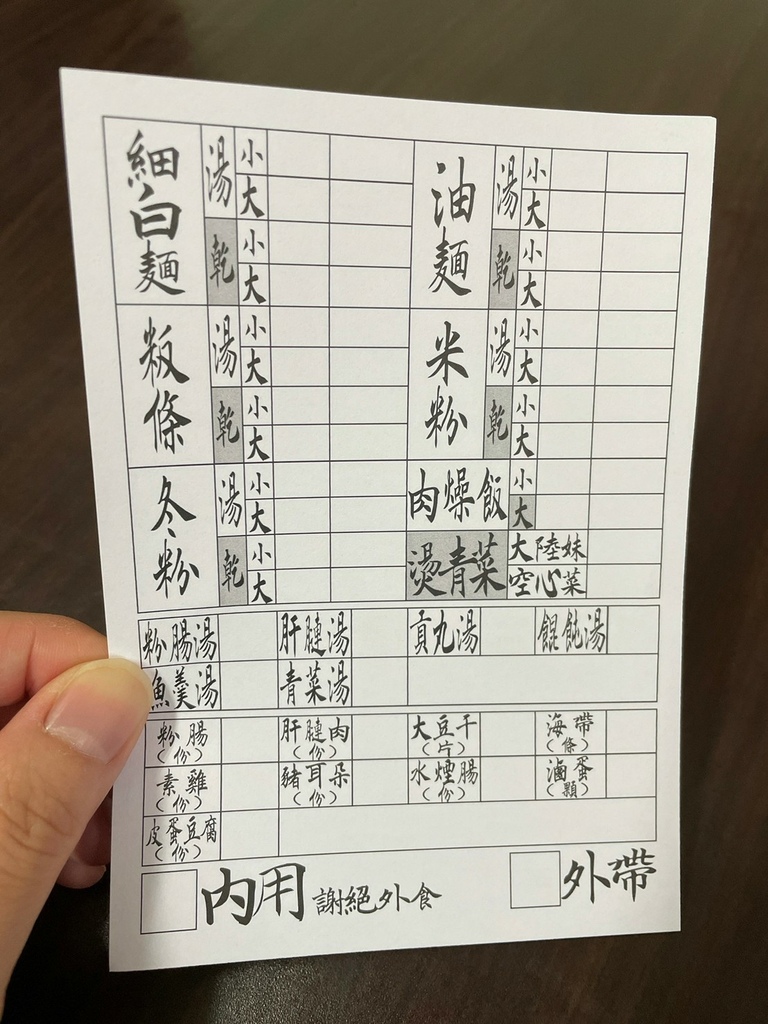 細白麵 湯 小 大 乾 小 大
油麵 湯 小 大 乾 小 大
粄條 湯 小 大 乾 小 大
米粉 湯 小 大 乾 小 大
冬粉 湯 小 大 乾 小 大
肉燥飯 小 大
燙青菜 大陸妹 空心菜
粉腸湯 肝膤湯 貢丸湯 餛飩湯
魚羹湯 青菜湯
粉腸(份) 肝膤肉(份) 大豆干(片) 海帶(條)
素雞(份) 豬耳朵(份) 水煙腸(份) 滷蛋(顆)
皮蛋豆腐(份)
內用 謝絕外食 外帶